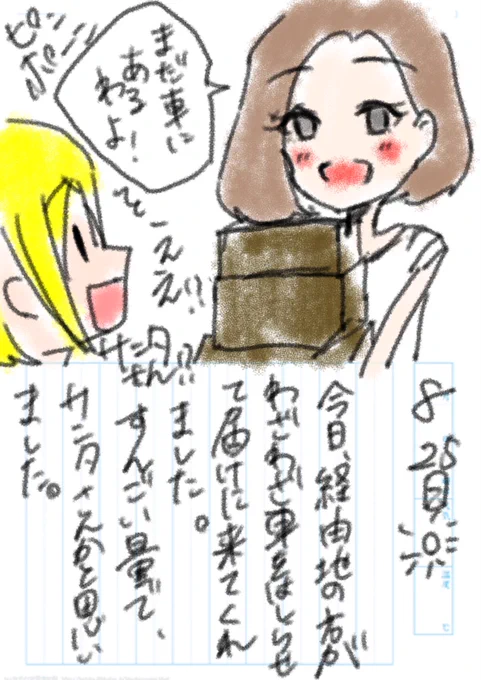 ピンポーン
まだ車に
あるわよ！
ええ!!
サンタさん!?
8 25日
今日、経由地の方が
わざわざ車をはしらせ
て届けに来てくれ
ました。
すんごい量で、
サンタさんかと思い
ました。